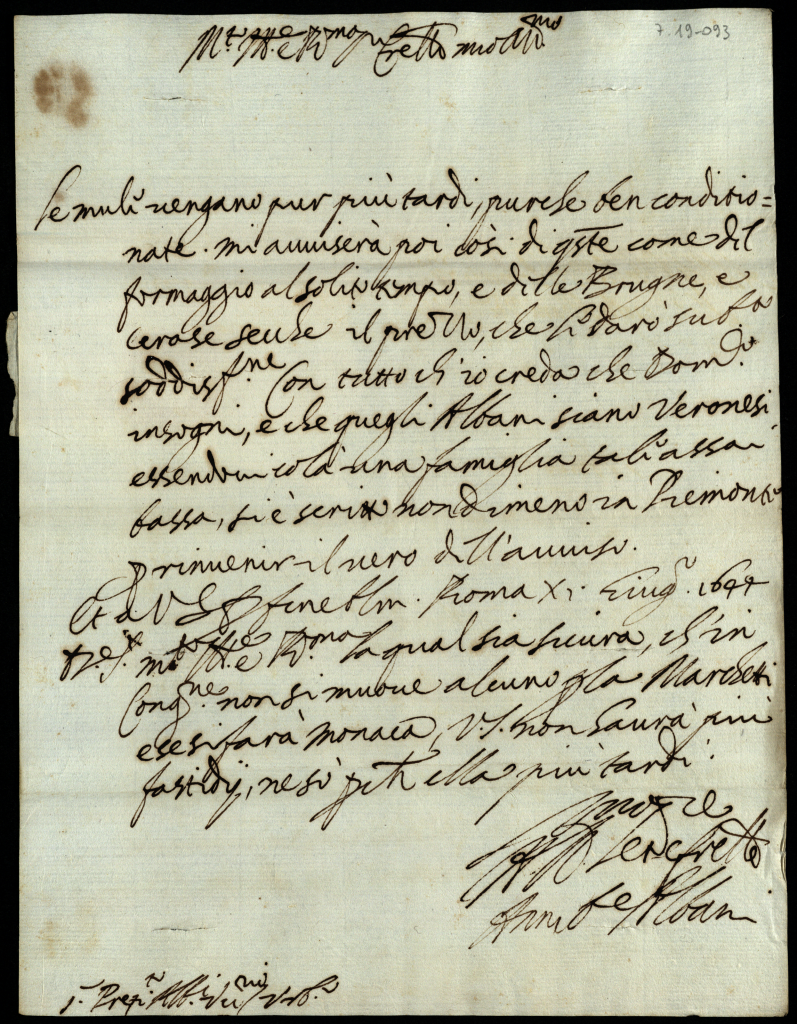 7.19-093
M.to Ill.re e R.mo Sig.r fratello mio Oss.mo
Se muli vengano pur più tardi, purche ben conditio=
nate. mi avviserà poi così di q.ste come del
formaggio al solito tempo, e delle Brugne, e
cerase seche il prezzo, che li darò subito
soddisf.ne Con tutto ch'io creda che Dom.co
insogni, e che quegli Albani siano Veronesi
essendovi colà una famiglia tale assai
bassa, si è scritto nondimeno in Piemonte
p rinvenir il vero dell'avviso.
Et a V.S. Roma XI Giug.o 1644
m.to Ill.re e R.ma la qual sia sicura, ch'in
Cong.ne non si muove alcuno p la Marchetti
e se si farà monaca, V.S. non haurà più
fastidij, ne sò ella più tardi.
fratello
Annibale Albani